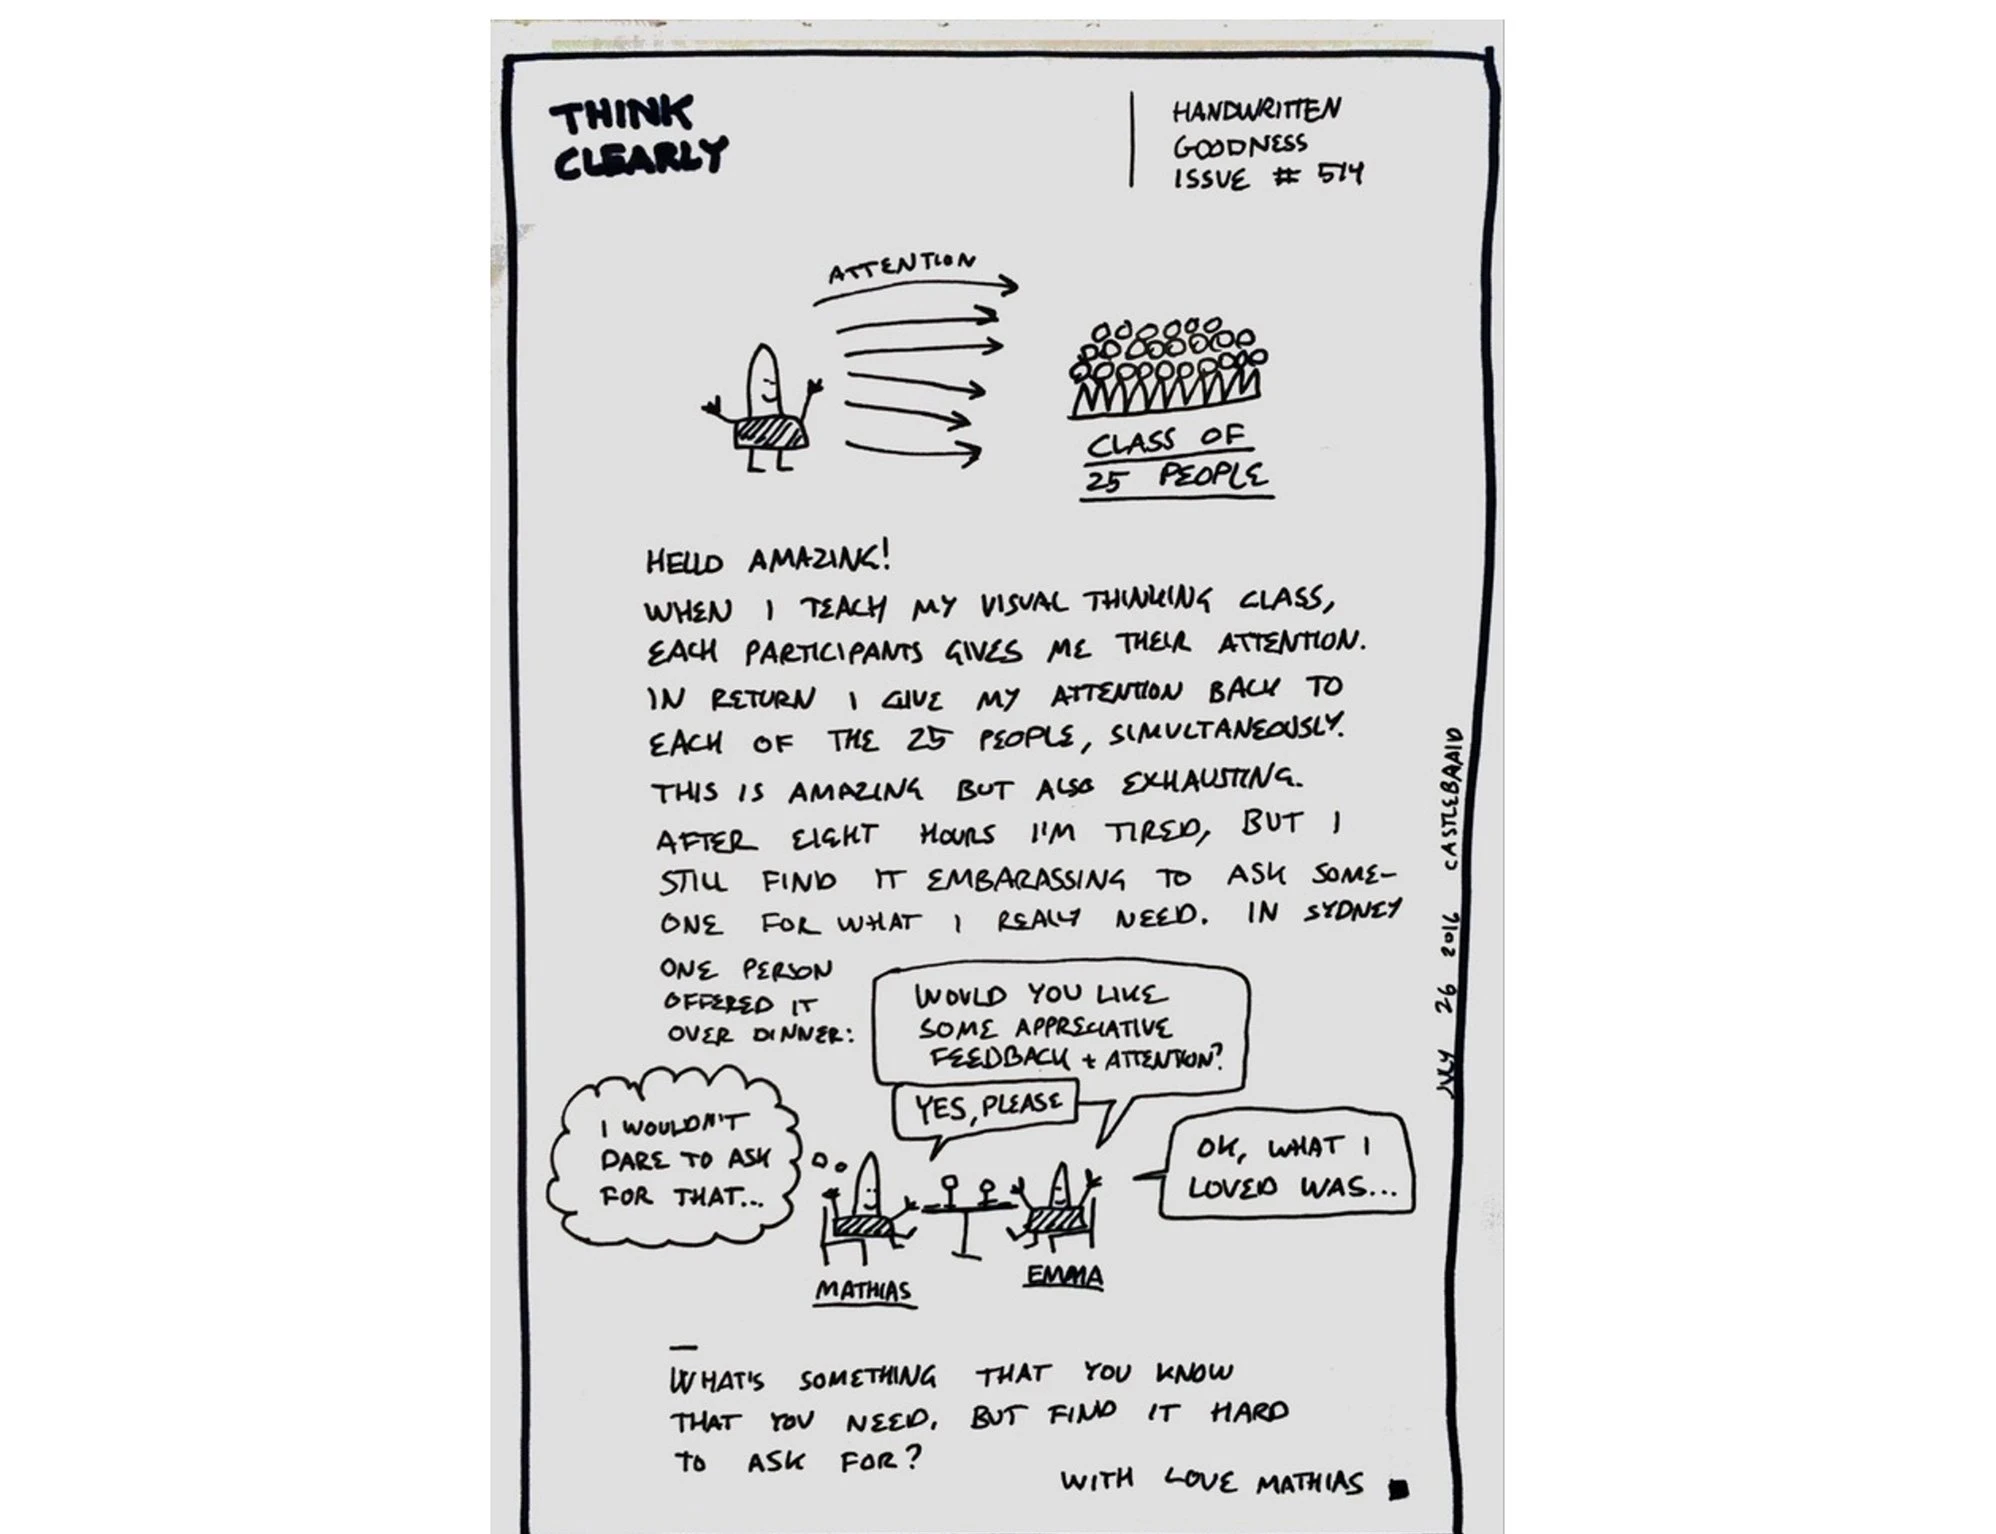 THINK
CLEARLY
HANDWRITTEN
GOODNESS
ISSUE # 514
ATTENTION
CLASS OF
25 PEOPLE
HELLO AMAZING!
WHEN I TEACH MY VISUAL THINKING CLASS,
EACH PARTICIPANTS GIVES ME THEIR ATTENTION.
IN RETURN I GIVE MY ATTENTION BACK TO
EACH OF THE 25 PEOPLE, SIMULTANEOUSLY.
THIS IS AMAZING BUT ALSO EXHAUSTING.
AFTER EIGHT HOURS I'M TIRED, BUT I
STILL FIND IT EMBARASSING TO ASK SOME-
ONE FOR WHAT I REALLY NEED. IN SYDNEY
ONE PERSON
OFFERED IT
OVER DINNER:
WOULD YOU LIKE
SOME APPRECIATIVE
FEEDBACK + ATTENTION?
YES, PLEASE
I WOULDN'T
DARE TO ASK
FOR THAT...
OK, WHAT I
LOVED WAS...
MATHIAS
EMMA
WHAT'S SOMETHING THAT YOU KNOW
THAT YOU NEED, BUT FIND IT HARD
TO ASK FOR?
WITH LOVE MATHIAS
26 2016